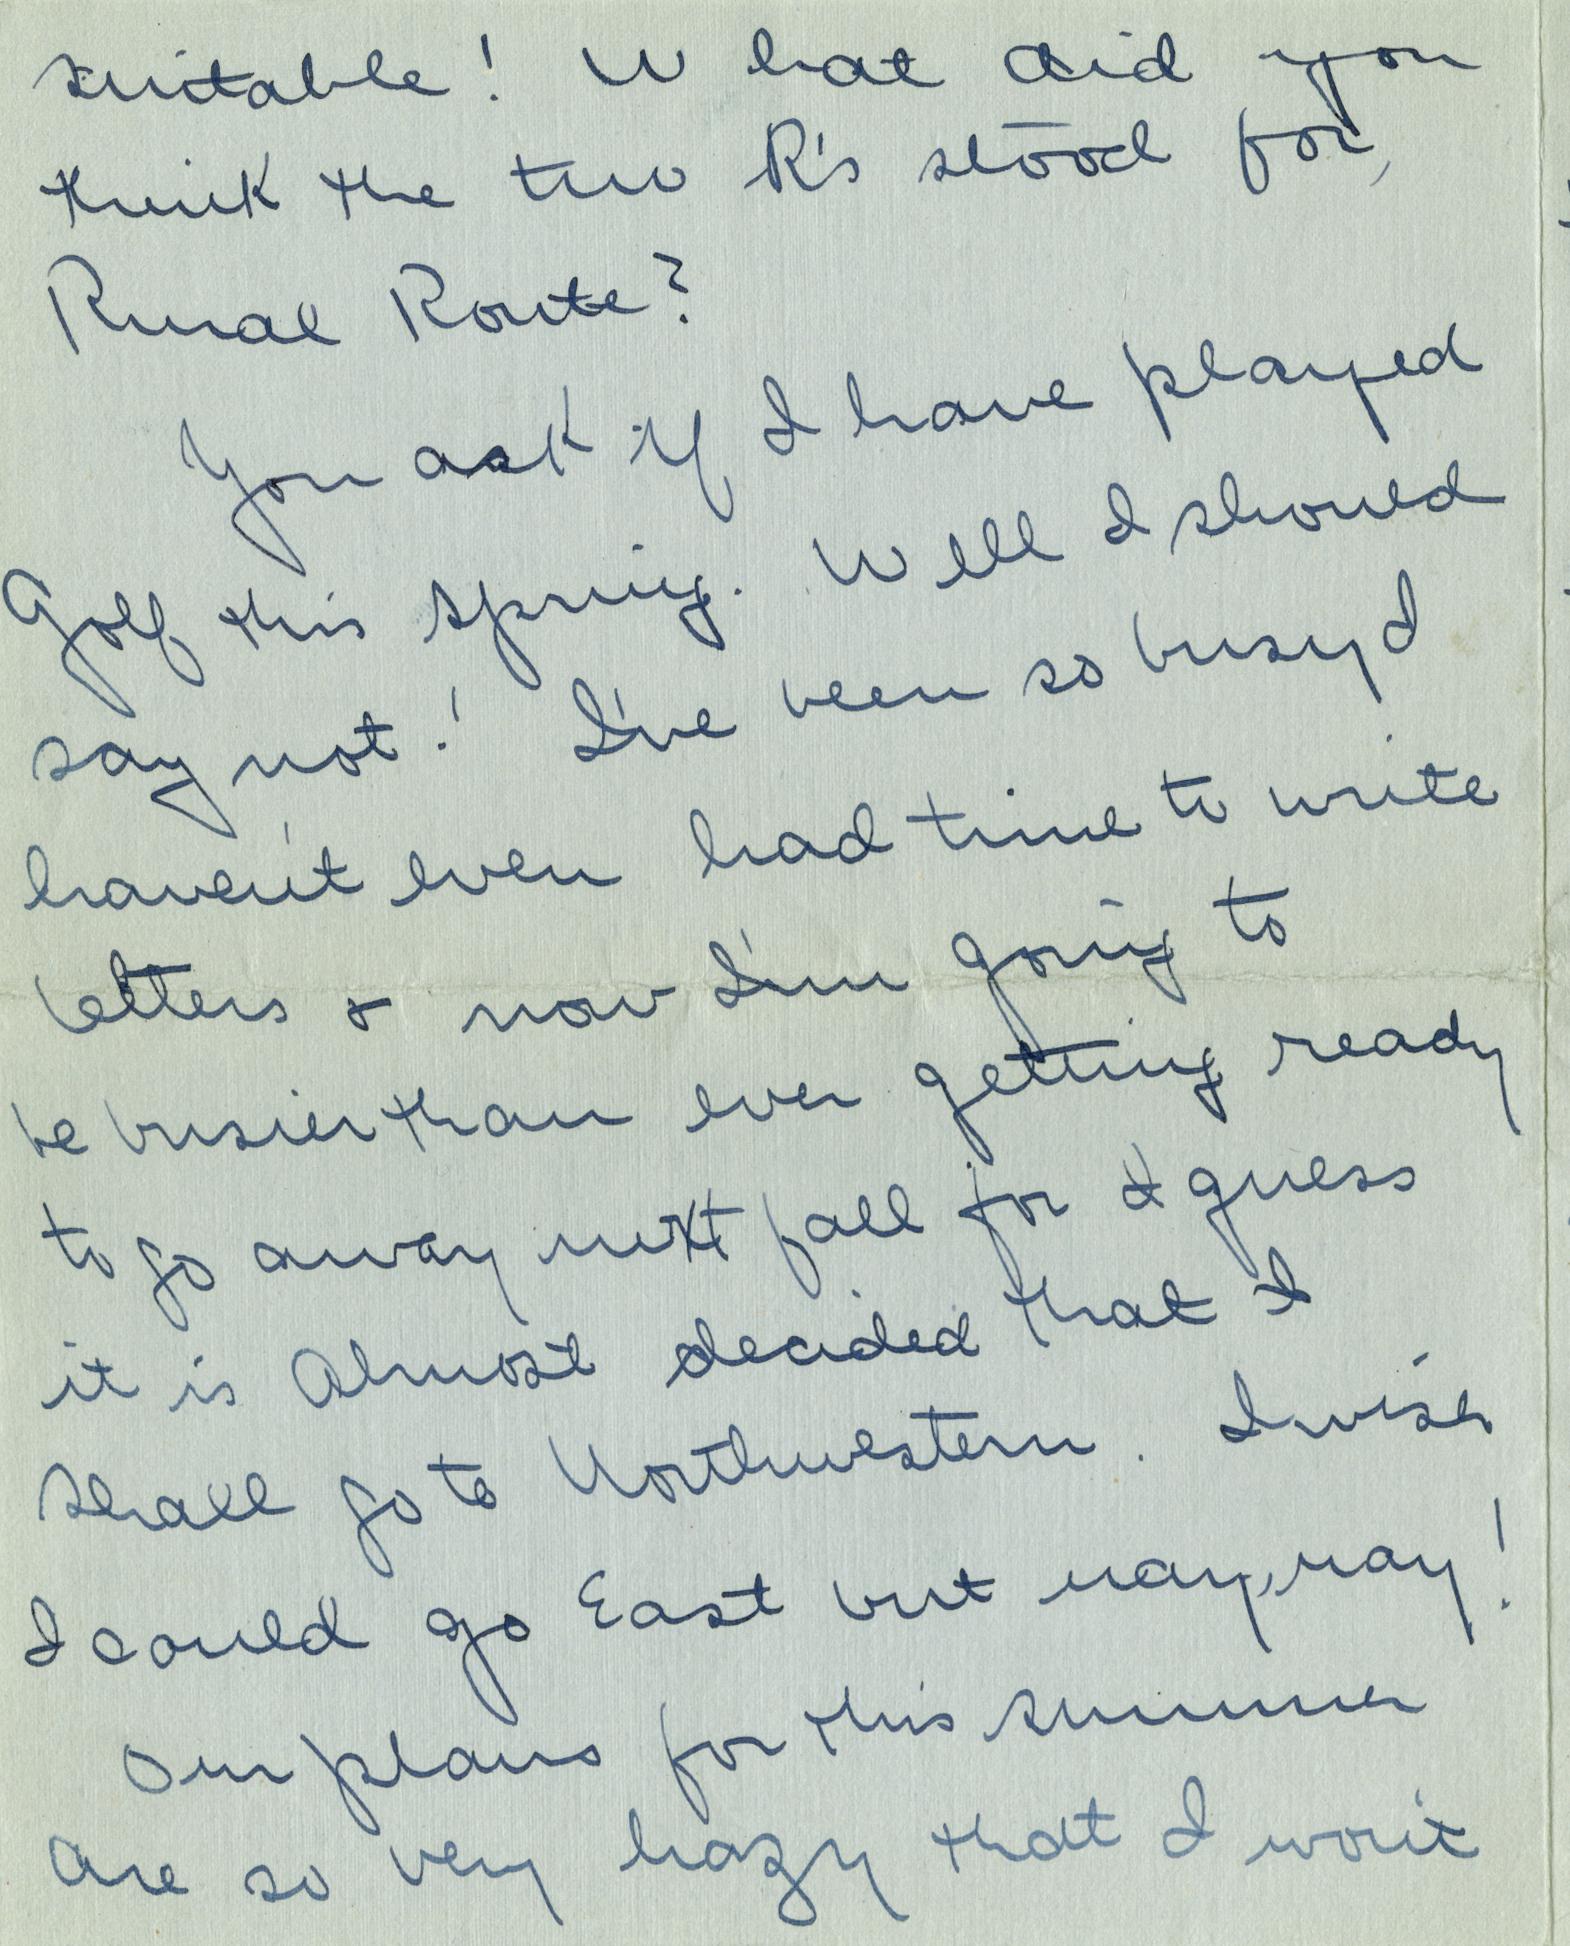 suitable! What did you
think the two R's stood for,
Rural Route?
You ask if I have played
Golf this spring. Well I should
say not! I've been so busy I
haven't even had time to write
letters & now I'm going to
be busier than ever getting ready
to go away next fall for I guess
it is almost decided that I
shall go to Northwestern. I wish
I could go East but nay, nay!
Our plans for this summer
are so very hazy that I won't